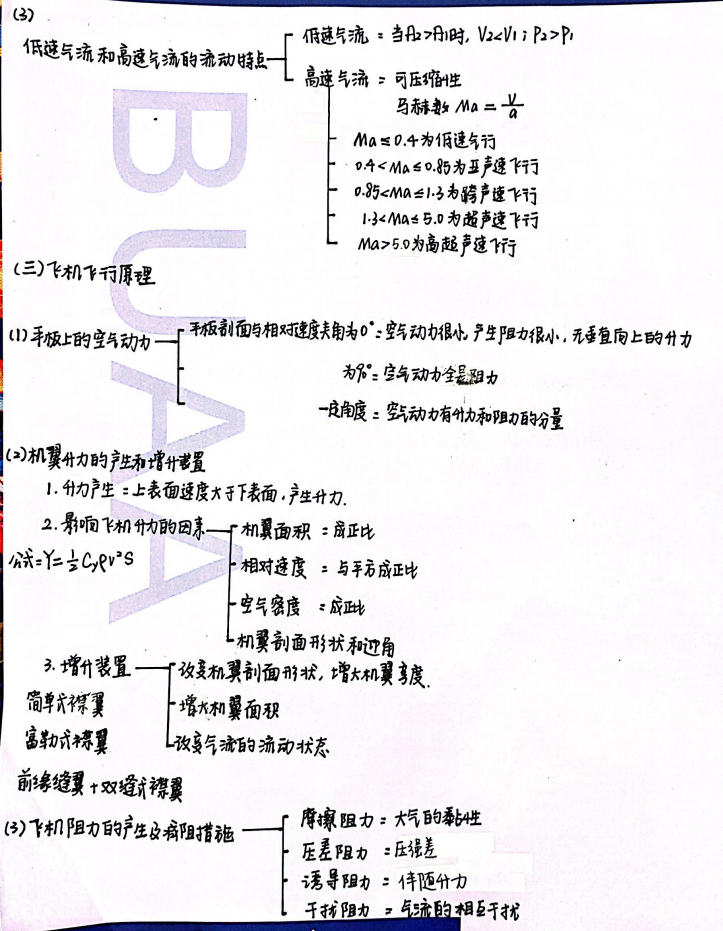 (3)
低速气流和高速气流的流动特点
低速气流：当A₂>A₁时, V₂<V₁；P₂>P₁
高速气流：可压缩性
马赫数 Ma = V/a
Ma≤0.4为低速飞行
0.4<Ma≤0.85为亚声速飞行
0.85<Ma≤1.3为跨声速飞行
1.3<Ma≤5.0为超声速飞行
Ma>5.0为高超声速飞行
(三)飞机飞行原理
(1)平板上的空气动力
平板剖面与相对速度夹角为0°：空气动力很小,产生阻力很小,无垂直向上的升力
为90°：空气动力全是阻力
一定角度：空气动力有升力和阻力的分量
(2)机翼升力的产生和增升装置
1.升力产生：上表面速度大于下表面,产生升力.
2.影响飞机升力的因素
机翼面积：成正比
公式：Y=½Cyρv²S
相对速度：与平方成正比
空气密度：成正比
机翼剖面形状和迎角
3.增升装置
改变机翼剖面形状, 增大机翼弯度.
简单式襟翼
增大机翼面积
富勒式襟翼
改变气流的流动状态
前缘缝翼+双缝式襟翼
(3)飞机阻力的产生及减阻措施
摩擦阻力：大气的黏性
压差阻力：压强差
诱导阻力：伴随升力
干扰阻力：气流的相互干扰
BUAA